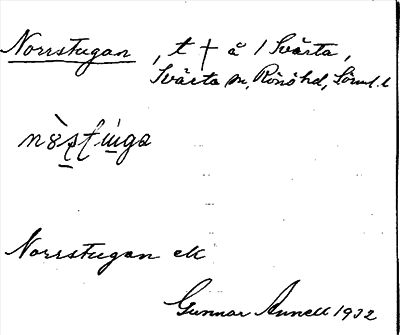 Norrstugan, t † å 1 Svärta,
Svärta sn, Rönö hd, Sörml. l
Norrstugan ell
Gunnar Annell 1932